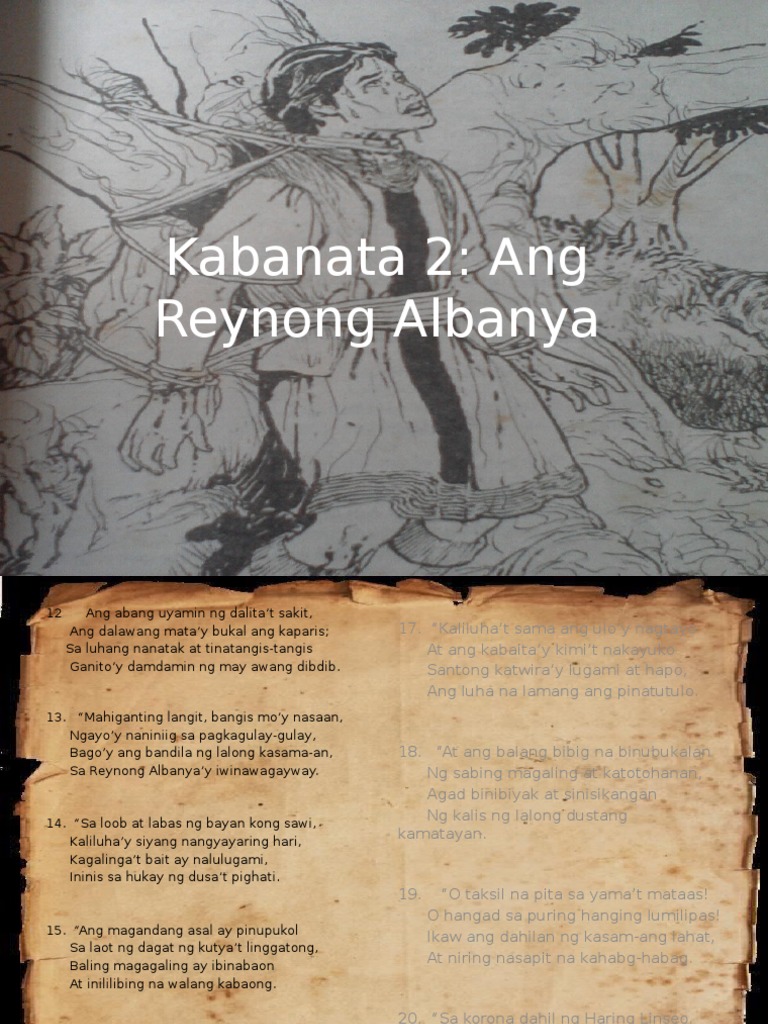 Kabanata 2: Ang
Reynong Albanya
12 Ang abang uyamin ng dalita't sakit,
Ang dalawang mata'y bukal ang kaparis;
Sa luhang nanatak at tinatangis-tangis
Ganito'y damdamin ng may awang dibdib.
13. “Mahiganting langit, bangis mo'y nasaan,
Ngayo'y naniniig sa pagkagulay-gulay,
Bago'y ang bandila ng lalong kasama-an,
Sa Reynong Albanya'y iwinawagayway.
14. “Sa loob at labas ng bayan kong sawi,
Kaliluha'y siyang nangyayaring hari,
Kagalinga't bait ay nalulugami,
Ininis sa hukay ng dusa't pighati.
15. “Ang magandang asal ay pinupukol
Sa laot ng dagat ng kutya't linggatong,
Baling magagaling ay ibinabaon
At inililibing na walang kabaong.
17. “Kaliluha't sama ang ulo'y nagtayo
At ang kabaita'y kimi't nakayuko
Santong katwira'y lugami at hapo,
Ang luha na lamang ang pinatutulo.
18. “At ang balang bibig na binubukalan
Ng sabing magaling at katotohanan
Agad binibiyak at sinisikangan
Ng kalis ng lalong dustang
kamatayan.
19. “O taksil na pita sa yama't mataas!
O hangad sa puring hanging lumilipas!
Ikaw ang dahilan ng kasam-ang lahat,
At niring nasapit na kahabg-habag.
20. “Sa korona dahil ng Haring Linseo,